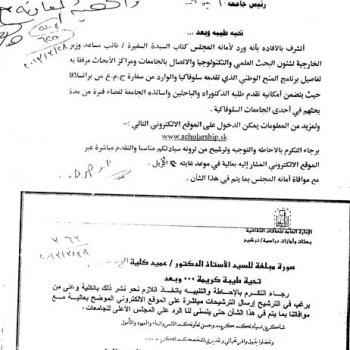 رئيس جامعة
تحيه طيبه وبعد ...
أتشرف بالافاده بأنه ورد لأمانه المجلس كتاب السيدة السفيرة / نائب مساعد وزير
الخارجية لشئون البحث العلمي والتكنولوجيا والاتصال بالجامعات ومراكز الأبحاث مرفقا به
تفاصيل برنامج المنح الوطني الذي تقدمه سلوفاكيا والوارد من سفارة ج.م.ع من براتسلافا
حيث يتضمن امكانية تقدم طلبه الدكتوراه والباحثين واساتذه الجامعة لقضاء فترة من مدة
بحثهم في أحدى الجامعات السلوفاكية .
ولمزيد من المعلومات يمكن الدخول على الموقع الالكتروني التالي :-
www.scholarship.sk
برجاء التكرم بالاحاطه والتوجيه وترشيح من ترونه سيادتكم مناسبا والتقدم مباشرة عبر
الموقع الالكتروني المشار إليه بعاليه في موعد غايته ٣٠ أبريل .
مع موافاة أمانه المجلس بما يتم في هذا الشأن .
الإدارة العامة للعلاقات الثقافية
بعثات وأجازات دراسية / ترشيح
صورة مبلغة للسيد الأستاذ الدكتور / عميد كلية
تحية طيبة كريمة ... وبعد
رجاء التكرم بالإحاطة والتنبيه باتخاذ اللازم نحو نشر ذلك بالكلية وعلى من
يرغب في الترشيح إرسال الترشيحات مباشرة على الموقع الالكتروني الموضح بعالية مع
موافاتنا بما يتم في هذا الشأن حتى يتسنى لنا الرد على المجلس الأعلى للجامعات .